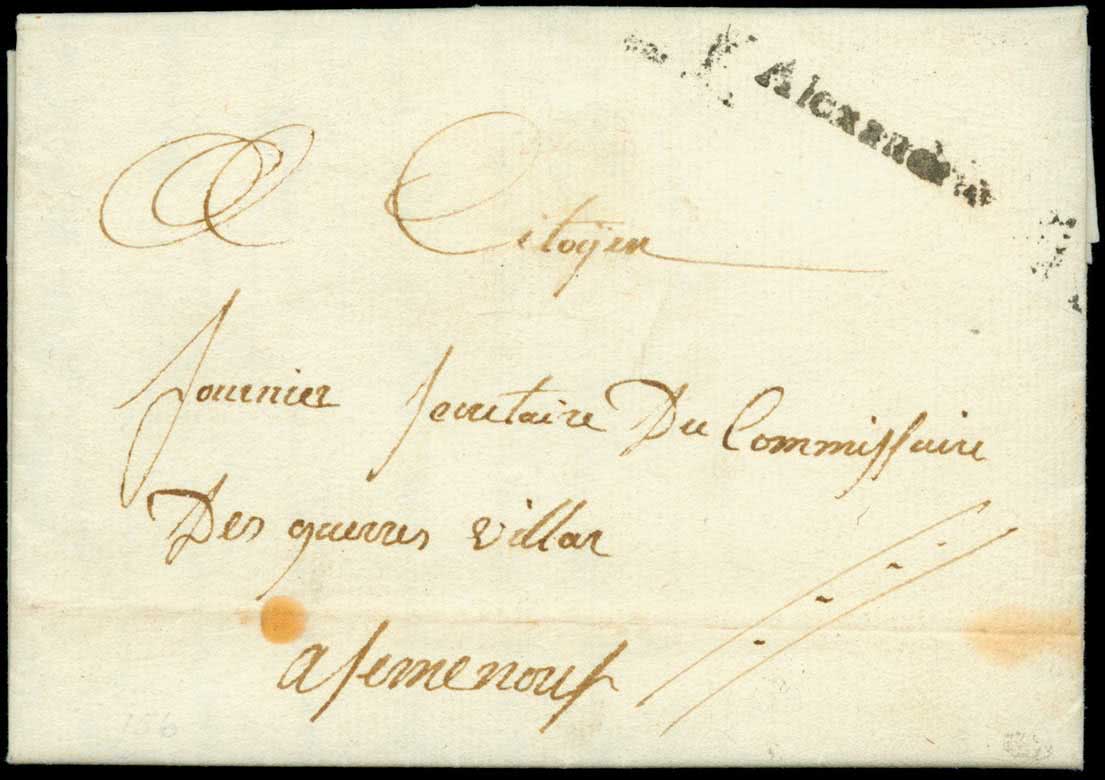 Alexandrie
Au Citoyen
fournier Secretaire Du Commissaire
Des guerres villar
a semenouf
156